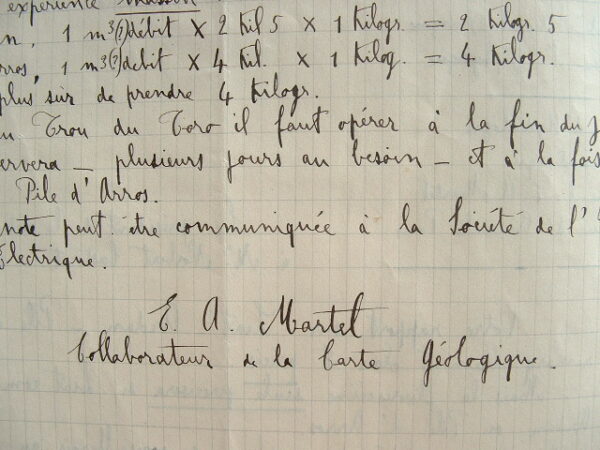 expérience
n, 1 m³(?) débit × 2 Kil 5 × 1 Kilogr. = 2 Kilogr. 5
rros, 1 m³(?) débit × 4 Kil. × 1 Kilog. = 4 Kilogr.
plus sûr de prendre 4 Kilogr.
u Trou du Toro il faut opérer à la fin du j
ervera — plusieurs jours au besoin — et à la fois
Pile d'Arros.
note peut être communiquée à la Société de l'
Électrique.
E. A. Martel
Collaborateur de la Carte géologique.